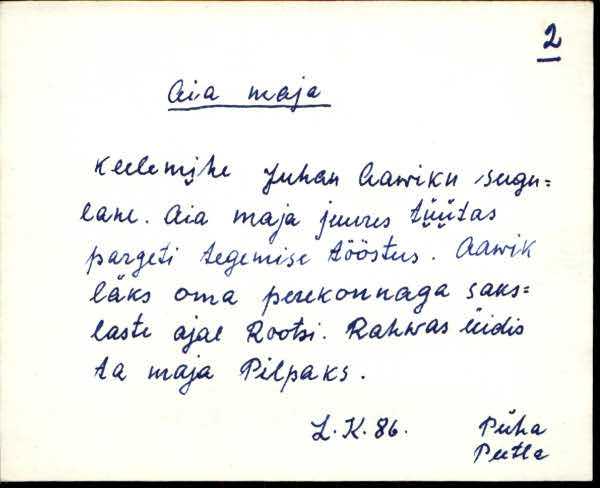 2
Aia maja
Keelemi̮he Juhan Aawiku sugu=
lane. Aia maja juures tüütas
pargeti tegemise tööstus. Aawik
läks oma perekonnaga saks=
laste ajal Rootsi. Rahwas üidis
ta maja Pilpaks.
L.K.86. Püha
Peetla